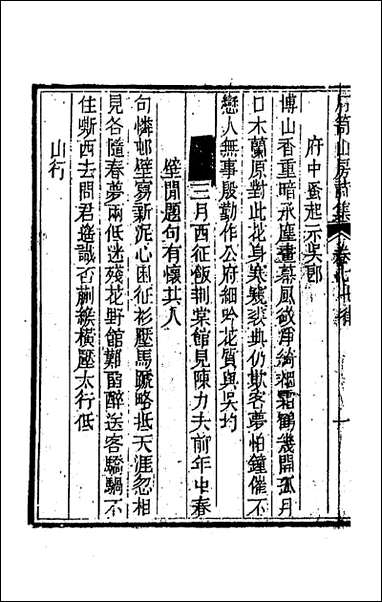 府中蚤起示吳郎
博山香重暗承塵畫幕風欹浄綺烟霜鶴幾開孤月
口木蘭原對此花身裘裝典仍欺客夢怕鐘催不
戀人無事殷勤作公府細吟花質與吳均
三月西征飯判棠館見陳力夫前年中春
壁閒題句有懷其人
句憐邨壁寫新泥心困征衫壓馬蹏略抵天涯忽相
見各隨春夢兩低迷殘花野館難留醉送客驕騧不
住嘶西去問君遙識否蒯緱橫壓太行低
山行